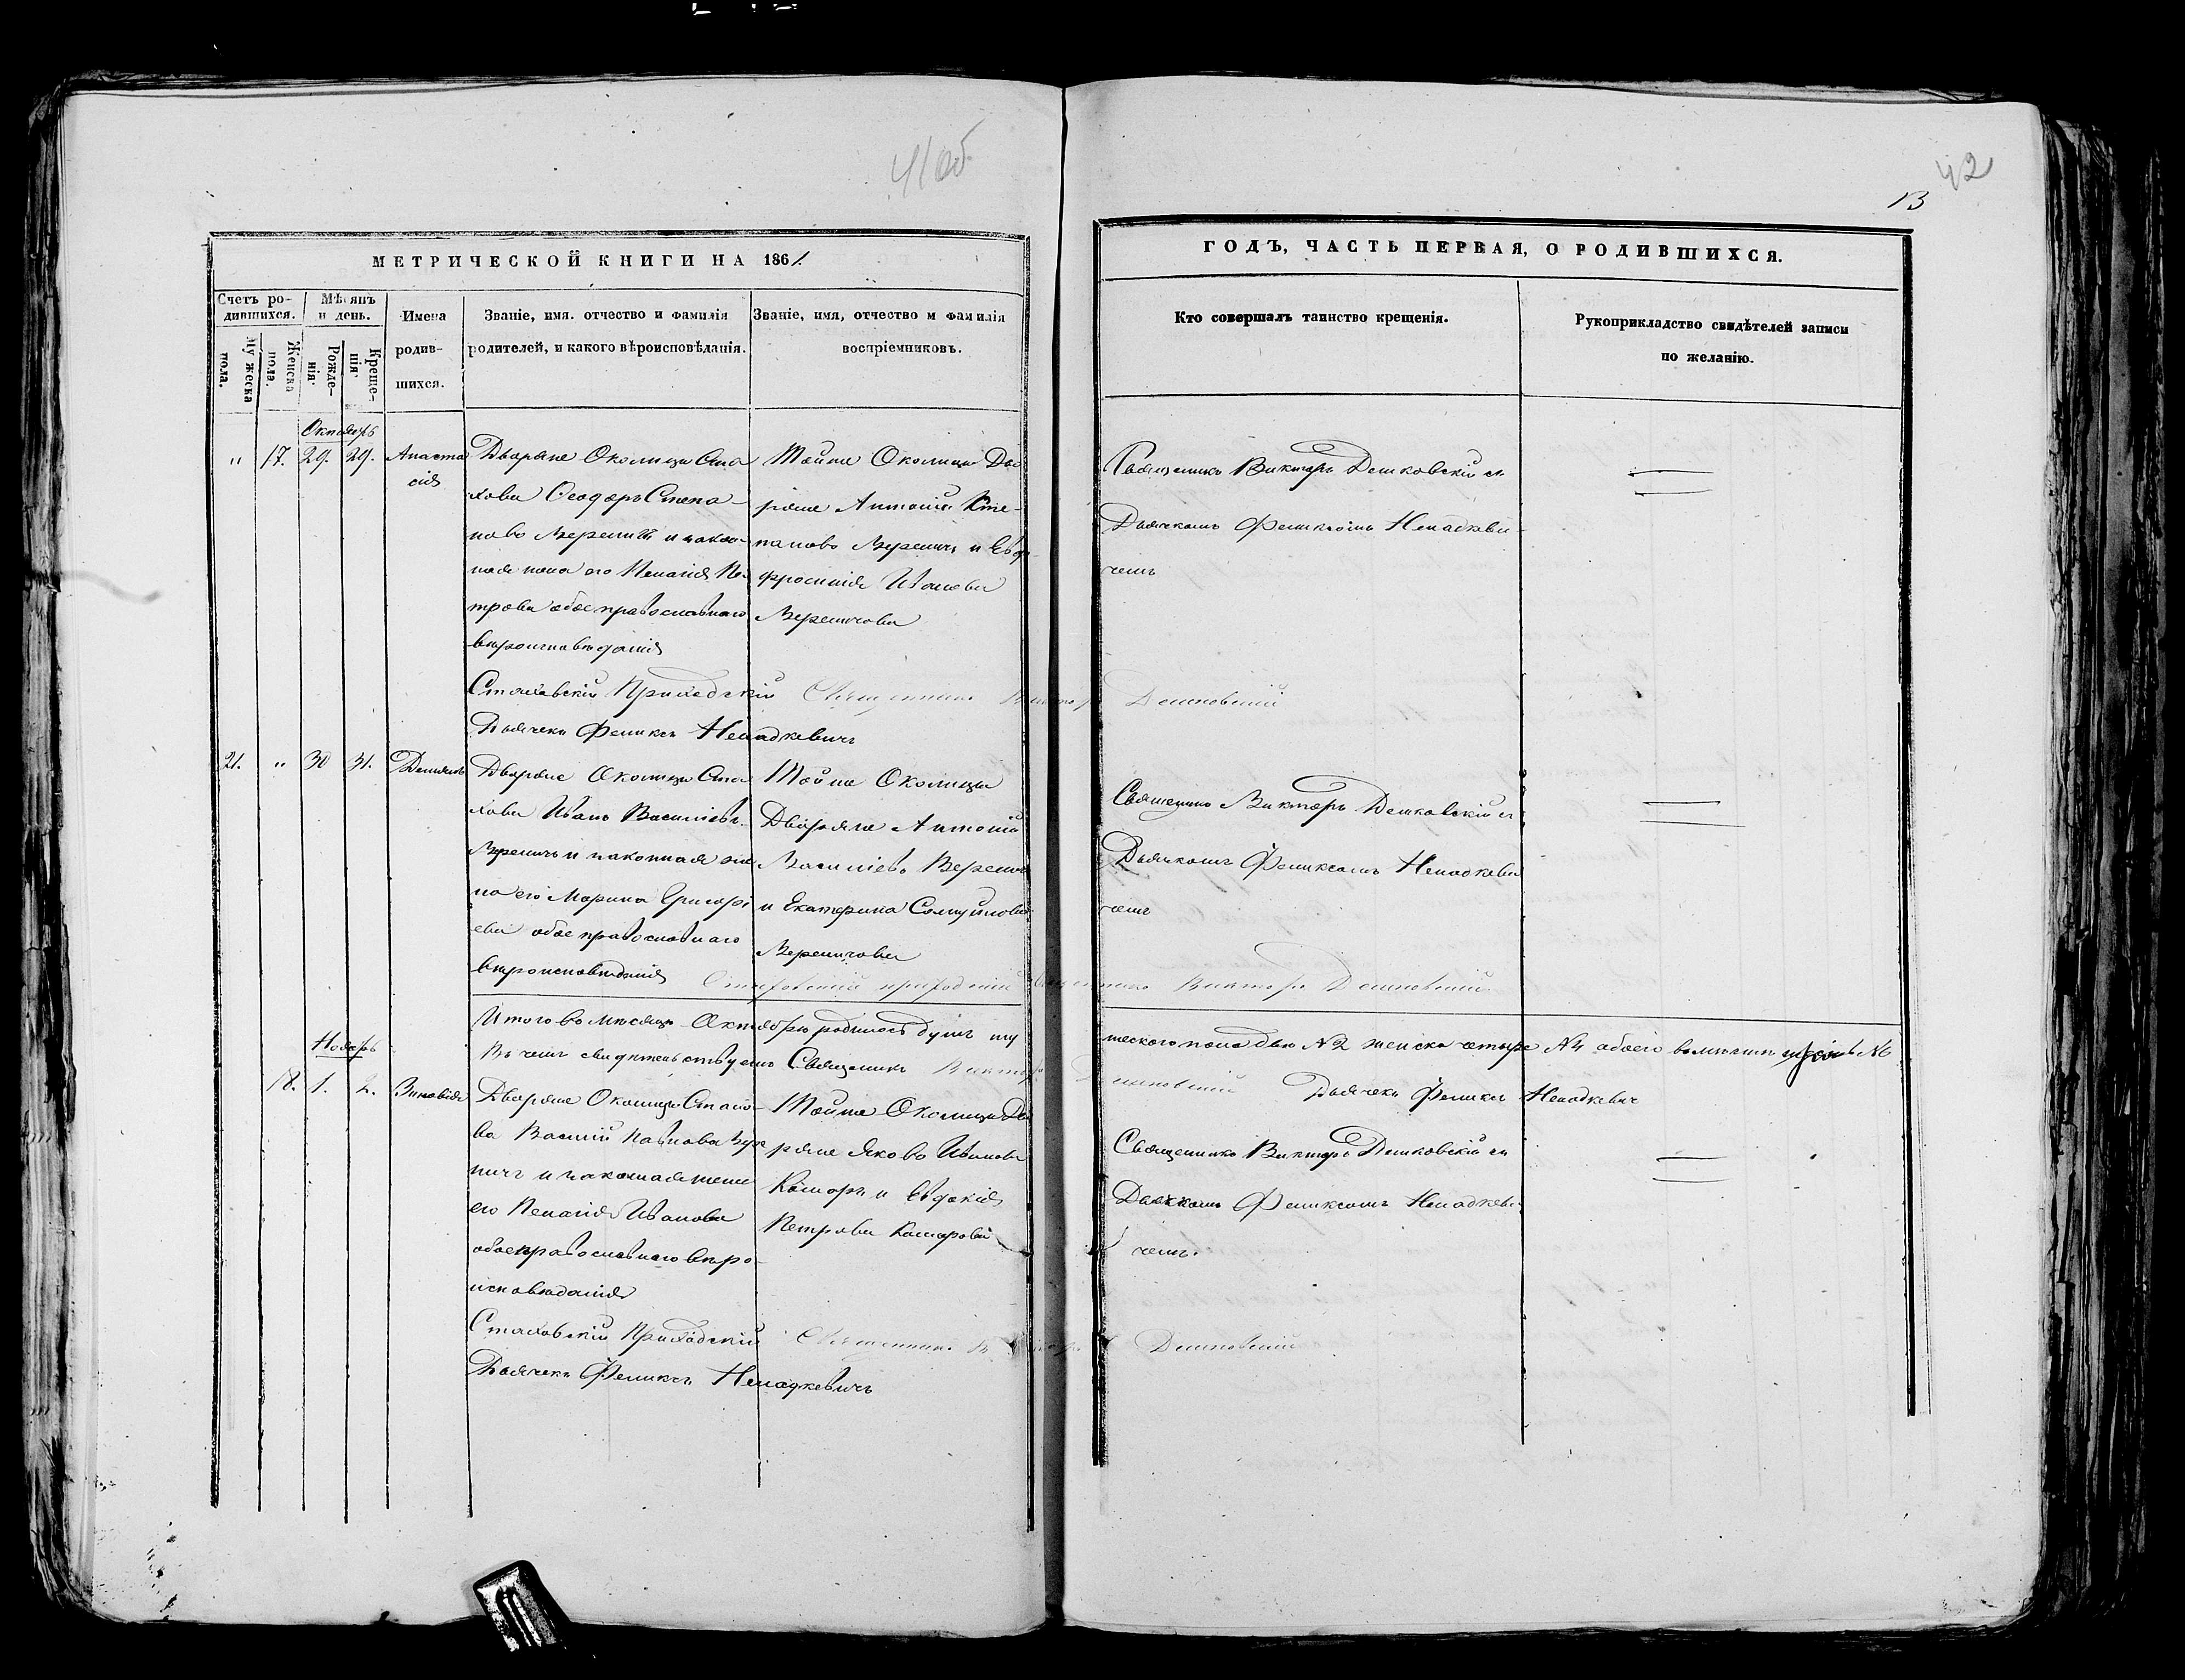 41об
42
13
МЕТРИЧЕСКОЙ КНИГИ НА 1861.
ГОДЪ, ЧАСТЬ ПЕРВАЯ, О РОДИВШИХСЯ.
Счетъ ро-
дившихся.
Мужеска
пола.
Женска
пола.
Мѣсяцъ
и день.
Рожде-
нія.
Креще-
нія.
Имена
родив-
шихся.
Званіе, имя. отчество и фамилія
родителей, и какого вѣроисповѣданія.
Званіе, имя, отчество и фамилія
воспріемниковъ.
Кто совершалъ таинство крещенія.
Рукоприкладство свидѣтелей записи
по желанію.
Октябрь
" 17. 29. 29.
Анаста
сія
Дворяне Околицы Ста
хова Ѳеодоръ Степа-
новъ Вереничъ и закон-
ная жена его Пелагія Пе
трова обое православнаго
вѣроисповѣданія
Тойже Околицы Дво
ряне Антоній Сте-
пановъ Вереничъ и Евфр
фросинія Иванова
Вереничова
Священникъ Викторъ Демковскій съ
Дьячкомъ Феликсомъ Ненадкеви-
чемъ
Стаховскій Приходскій Священникъ Викторъ Демковскій
Дьячекъ Феликсъ Ненадкевичъ
21. " 30 31.
Дворяне Околицы Ста
хова Иванъ Васильевъ
Вереничъ и законная же
на его Марина Григорі
ева обое православнаго
вѣроисповѣданія
Тойже Околицы
Дворяне Антоній
Василіевъ Вереничъ
и Екатерина
Вереничова
Священникъ Викторъ Демковскій съ
Дьячкомъ Феликсомъ Ненадкеви
чемъ
Стаховскій приходскій Священникъ Викторъ Демковскій
Итого въ мѣсяцѣ Октябрѣ родилось душъ му
жескаго пола двѣ №2 женска четыре №4 обоего вмѣстѣ №6
Въ чемъ свидѣтельствуемъ Священникъ Викторъ Демковскій Дьячекъ Феликсъ Ненадкевичъ
Ноябрь
18. 1. 2.
Зиновія
Дворяне Околицы Стахо-
ва Василій Павловъ Вере
ничъ и законная жена
его Пелагія Иванова
обое православнаго вѣро-
исповѣданія
Тойже Околицы Дво
ряне Яковъ Ивановъ
Комаръ и Евдокія
Петрова Комарова
Священникъ Викторъ Демковскій съ
Дьячкомъ Феликсомъ Ненадкеви-
чемъ.
Стаховскій Приходскій Священникъ Викторъ Демковскій
Дьячекъ Феликсъ Ненадкевичъ